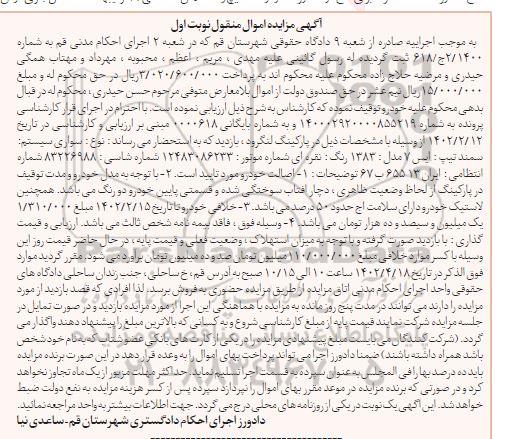 آگهی مزایده اموال منقول نوبت اول
به موجب اجراییه صادره از شعبه ۹ دادگاه حقوقی شهرستان قم که در شعبه ۲ اجرای احکام مدنی قم به شماره
۲/۱۴۰۰ج/۶۱۸ ثبت گردیده له رسول گائینی علیه مهدی ، مریم ، اعظم ، محبوبه ، مهرداد و مهتاب همگی
حیدری و مرضیه حلاج زاده محکوم علیه محکوم اند به پرداخت ۳/۰۲۰/۶۰۰/۰۰۰ ریال در حق محکوم له و مبلغ
۱۵/۰۰۰/۰۰۰ ریال نیم عشر در حق صندوق دولت از اموال بلامعارض متوفی مرحوم حسن حیدری ، محکوم له در قبال
بدهی محکوم علیه خودرو توقیف نموده که کارشناس به شرح ذیل ارزیابی نموده است. با احترام در اجرای قرار کارشناسی
پرونده به شماره ۱۴۰۰۰۲۹۲۰۰۰۰۸۵۵۲۱۹ و به شماره بایگانی ۰۰۰۰۶۱۸ مبنی بر ارزیابی و کارشناسی در تاریخ
۱۴۰۲/۲/۱۲ از وسیله با مشخصات ذیل در پارکینگ لنگرود ، بازدید که به استحضار می رساند : نوع : سواری سیستم:
سمند تیپ : ایس ۷ مدل : ۱۳۸۳ رنگ : نقره ای شماره موتور : ۱۲۴۸۳۰۸۶۲۳۳ شماره شاسی : ۸۳۲۲۶۹۸۸ شماره
انتظامی : ایران ۱۳ ۶۵۵ ب ۶۷ توضیحات : ۱- اصالت خودرو مورد تایید است. ۲- با توجه به مدل خودرو و مدت توقیف
در پارکینگ از لحاظ وضعیت ظاهری ، دچار افتاب سوختگی شده و قسمتی پایین خودرو دو رنگ می باشد. همچنین
لاستیک خودرو دارای سلامت اج حدود ۵۰ درصد می باشد. ۳- خلافی خودرو تا تاریخ ۱۴۰۲/۲/۱۵ مبلغ ۱/۳۱۰/۰۰۰
یک میلیون و سیصد و ده هزار تومان می باشد. ۴- وسیله فوق ، فاقد بیمه نامه شخص ثالث می باشد. ارزیابی و قیمت
گذاری : با بازدید صورت گرفته و با توجه به میزان استهلاک ، وضعیت فعلی و قیمت پایه ، در حال حاضر قیمت روز این
وسیله با کسر موارد خلافی مبلغ ۱۱۰/۰۰۰/۰۰۰ میلیون تومان صد و ده میلیون تومان برآورد می شود، مقرر گردید موارد
فوق الذکر در تاریخ ۱۴۰۲/۴/۱۸ ساعت ۱۰ الی ۱۰/۱۵ صبح به آدرس قم ، خ ساحلی ، جنب زندان ساحلی دادگاه های
حقوقی واحد اجرای احکام مدنی اتاق مزایده از طریق مزایده حضوری به فروش برسد، لذا افرادی که قصد بازدید از مورد
مزایده را دارند می توانند در مدت پنج روز مانده به مزایده با هماهنگی این اجرا از مورد مزایده بازدید و در صورت تمایل در
جلسه مزایده شرکت نمایند قیمت پایه از مبلغ کارشناسی شروع و به کسانی که بالاترین مبلغ را پیشنهاد دهند واگذار می
گردد. (شرکت کنندگان می بایست مبلغ پیشنهادی مزایده را در یکی از کارت های بانکی عضو شتاب که به نام خود شخص
باشد همراه داشته باشند) ضمنا دادورز اجرا می تواند پرداخت بهای اموال را به وعده قرار دهد در این صورت برنده مزایده
باید ده درصد بها را فی المجلس به عنوان سپرده به قسمت اجرا تسلیم نماید. حداکثر مهلت مزبور از یک ماه تجاوز نخواهد
کرد و در صورتی که برنده مزایده در موعد مقرر بهای اموال را نپردازد سپرده پس از کسر هزینه مزایده به نفع دولت ضبط
خواهد شد. این آگهی یک نوبت در یکی از روزنامه های محلی درج می گردد. جهت اطلاعات بیشتر به واحد مراجعه نمائید.
دادورز اجرای احکام دادگستری شهرستان قم-ساعدی نیا